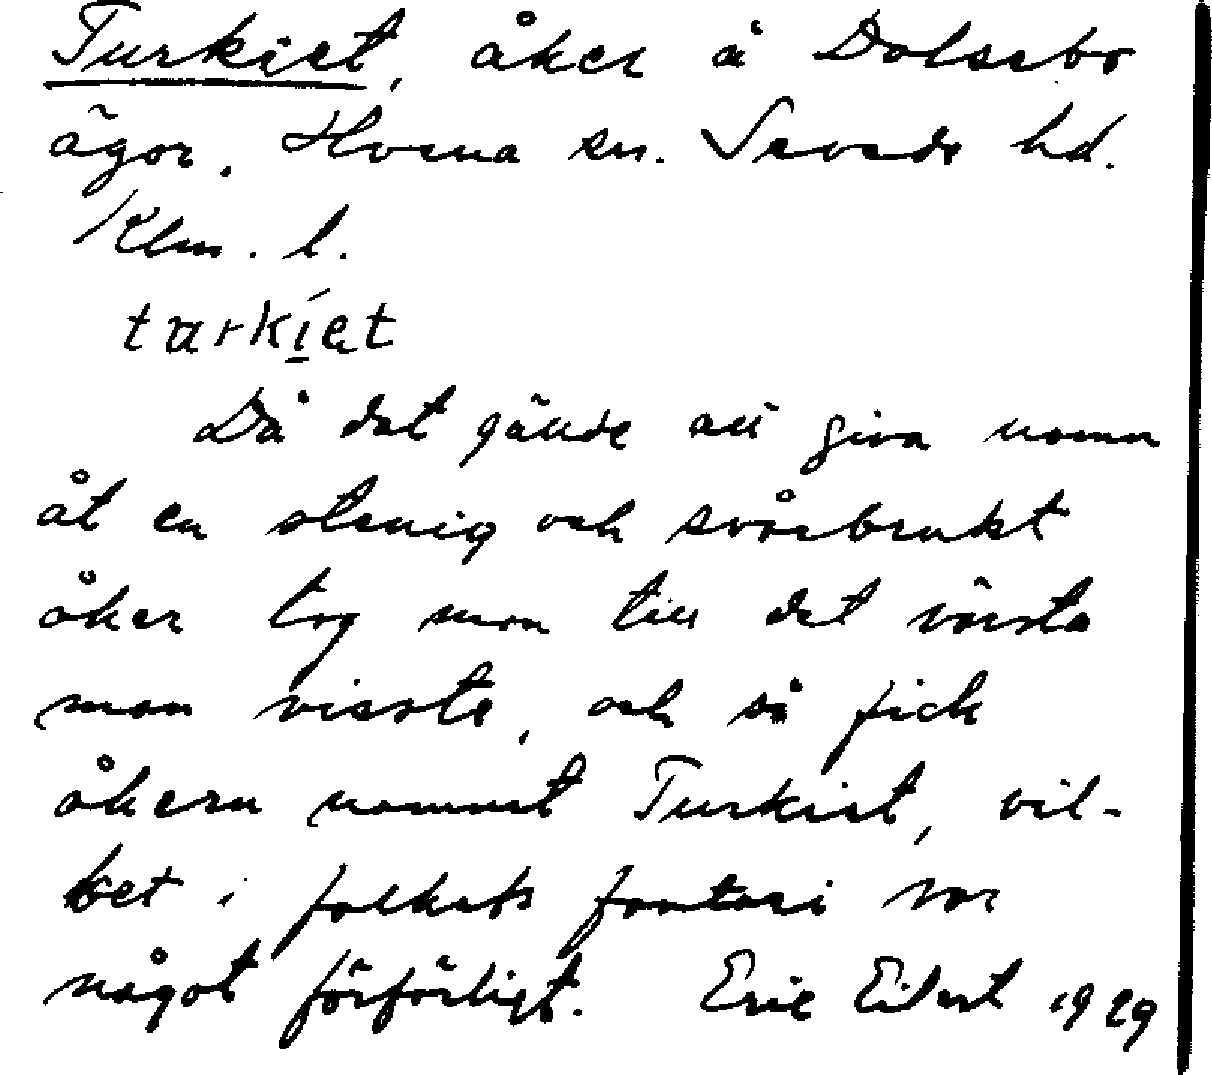 Turkiet, åker å Dalsebo
ägor, Hvena sn. Sevede hd.
Klm. l.
turkíet
Då det gällde att giva namn
åt en stenig och svårbrukt
åker tog man till det värsta
man visste, och så fick
åkern namnet Turkiet, vil-
ket i folkets fantasi var
något förfärligt. Eric Eilert 1929